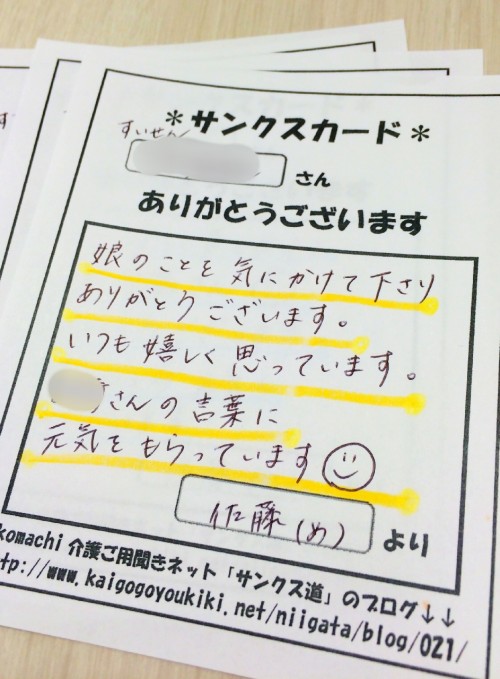 *サンクスカード*
すいせん
さん
ありがとうございます
娘のことを気にかけて下さり
ありがとうございます。
いつも嬉しく思っています。
さんの言葉に
元気をもらっています
佐藤(め)
より
komachi 介護ご用聞きネット「サンクス道」のブログ↓↓
tp://www.kaigogoyoukiki.net/niigata/blog/021/